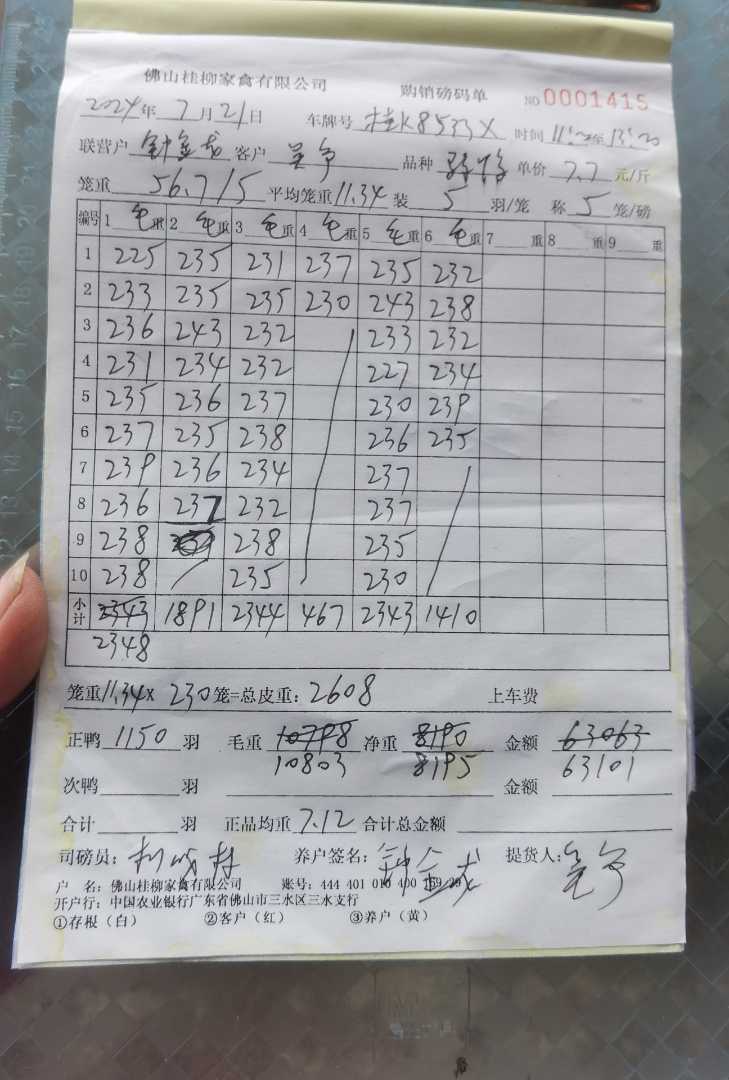 佛山桂柳家禽有限公司 购销磅码单 NO 0001415
2024年 7月21日 车牌号 桂K8533X 时间 11:20至13:20
联营户 钟金龙 客户 吴争 品种 单价 7.7 元/斤
笼重 56.7/5 平均笼重 11.34 装 5 羽/笼 称 5 笼/磅
编号 1 毛重 2 毛重 3 毛重 4 毛重 5 毛重 6 毛重 7 重 8 重 9 重
1 225 235 231 237 235 232
2 233 235 235 230 243 238
3 236 243 232 233 232
4 231 234 232 227 234
5 235 236 237 230 239
6 237 235 238 236 235
7 239 236 234 237
8 236 237 232 237
9 238 238 235
10 238 235 230
小计 2343 1891 2344 467 2343 1410
2348
笼重 11.34 x 230 笼=总皮重: 2608 上车费
正鸭 1150 羽 毛重 10798 净重 8190 金额 63063
10803 8195 63101
次鸭 羽 金额
合计 羽 正品均重 7.12 合计总金额
司磅员: 养户签名: 钟金龙 提货人: 吴争
户 名: 佛山桂柳家禽有限公司 账号: 444 401 010 400 159 29
开户行: 中国农业银行广东省佛山市三水区三水支行
①存根（白） ②客户（红） ③养户（黄）